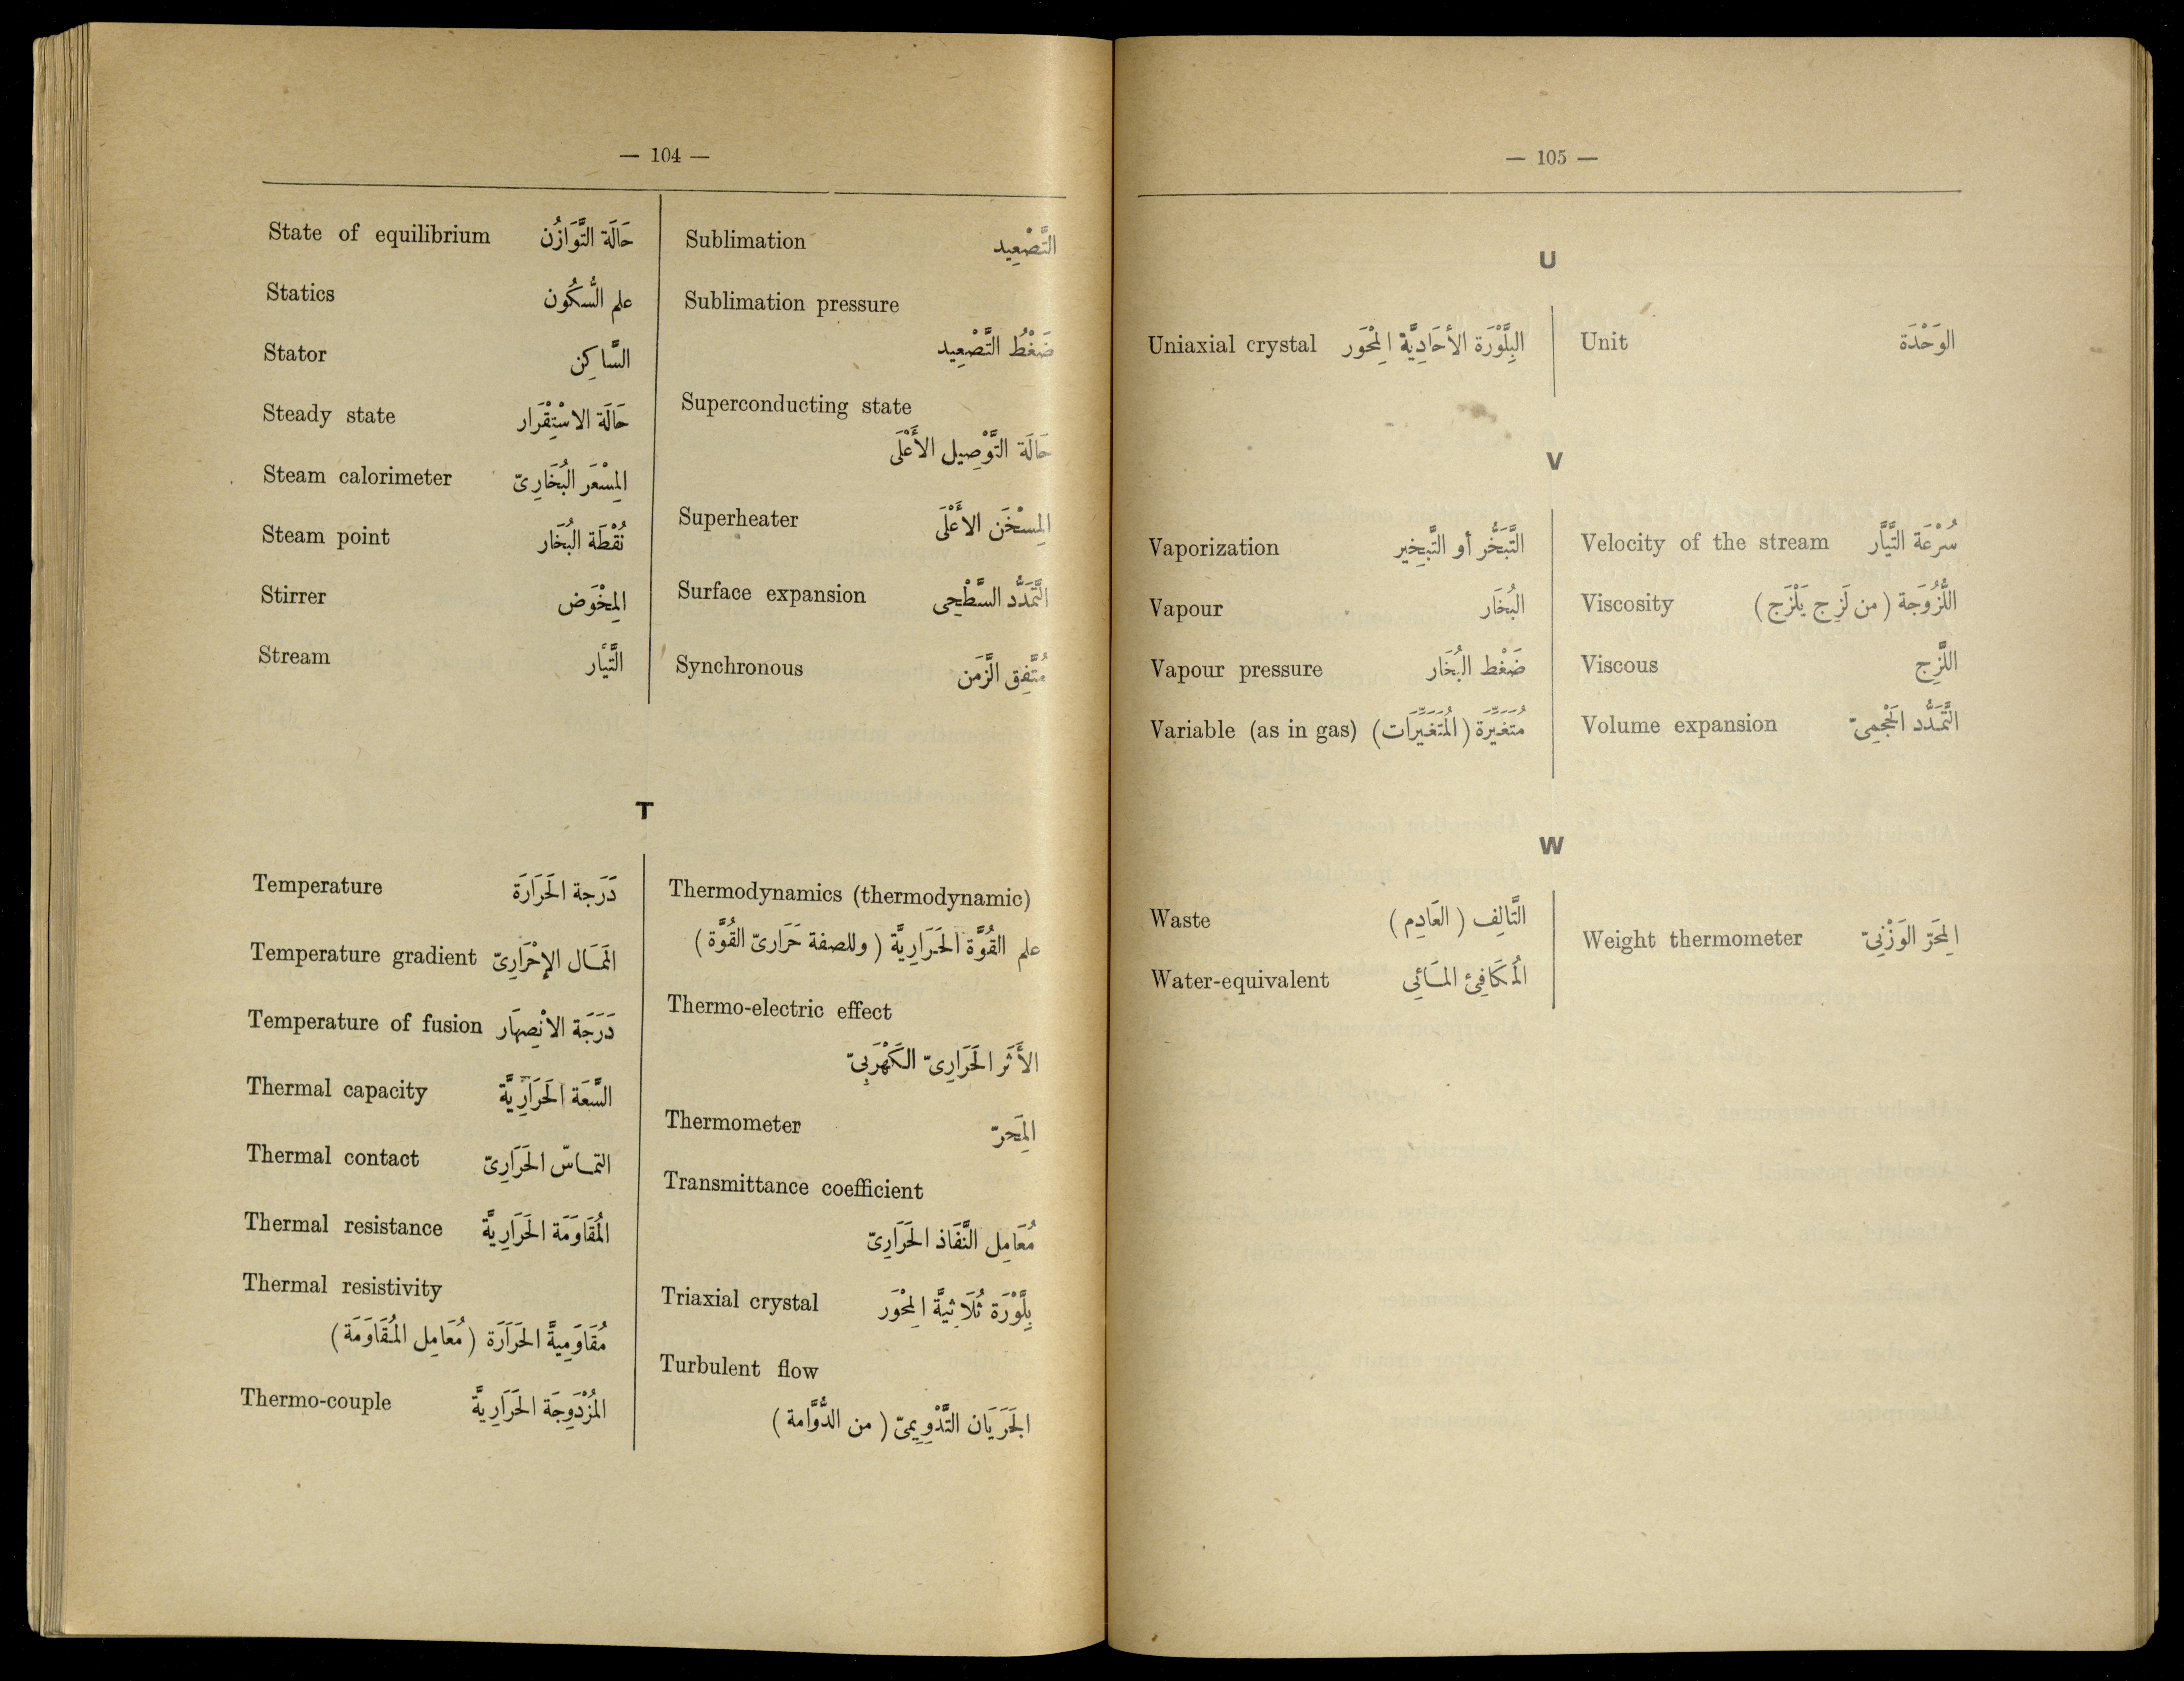 — 104 —
State of equilibrium حَالَة التَّوَازُن
Statics علم السُّكُون
Stator السَّاكِن
Steady state حَالَة الاسْتِقْرَار
Steam calorimeter المِسْعَر البُخَارِىّ
Steam point نُقْطَة البُخَار
Stirrer المِخْوَض
Stream التَّيَّار
Sublimation التَّصْعِيد
Sublimation pressure
ضَغْطُ التَّصْعِيد
Superconducting state
حَالَة التَّوْصِيل الأَعْلَى
Superheater المِسْخَن الأَعْلَى
Surface expansion التَّمَدُّد السَّطْحِى
Synchronous مُتَّفِق الزَّمَن
T
Temperature دَرَجة الحَرَارَة
Temperature gradient المَمَال الإحْرَارِىّ
Temperature of fusion دَرَجَة الانْصِهَار
Thermal capacity السَّعَة الحَرَارِيَّة
Thermal contact التماسّ الحَرَارِىّ
Thermal resistance المُقَاوَمَة الحَرَارِيَّة
Thermal resistivity
مُقَاوَمِيَّة الحَرَارَة ( مُعَامِل المُقَاوَمَة )
Thermo-couple المُزْدَوِجَة الحَرَارِيَّة
Thermodynamics (thermodynamic)
علم القُوَّة الحَرَارِيَّة ( وللصفة حَرَارىّ القُوَّة )
Thermo-electric effect
الأَثَر الحَرَارِىّ الكَهْرَبِىّ
Thermometer المِحَرّ
Transmittance coefficient
مُعَامِل النَّفَاذ الحَرَارِىّ
Triaxial crystal بِلَّوْرَة ثُلَاثِيَّة المِحْوَر
Turbulent flow
الجَرَيَان التَّدْوِيمِىّ ( من الدُّوَّامة )
— 105 —
U
Uniaxial crystal البِلَّوْرَة الأحَادِيَّة المِحْوَر
Unit الوَحْدَة
V
Vaporization التَّبَخُّر أو التَّبخِير
Vapour البُخَار
Vapour pressure ضَغْط البُخَار
Variable (as in gas) مُتَغَيِّرَة ( المُتَغَيِّرَات )
Velocity of the stream سُرْعَة التَّيَّار
Viscosity اللُّزُوجَة ( من لَزِج يَلْزَج )
Viscous اللَّزِج
Volume expansion التَّمَدُّد الحَجْمِىّ
W
Waste التَّالِف ( العَادِم )
Water-equivalent المُكَافِئ المَائِي
Weight thermometer المِحَرّ الوَزْنِىّ